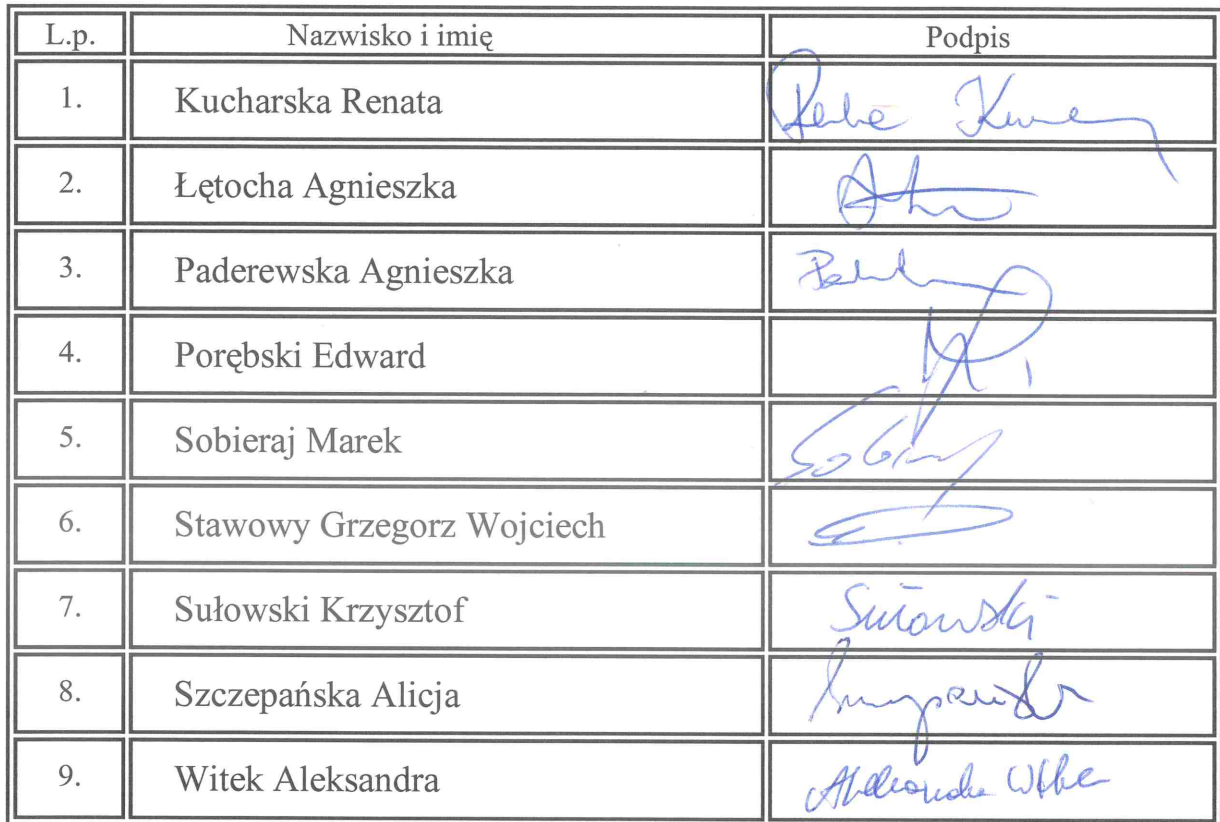 L.p. Nazwisko i imię Podpis
1. Kucharska Renata
2. Łętocha Agnieszka
3. Paderewska Agnieszka
4. Porębski Edward
5. Sobieraj Marek
6. Stawowy Grzegorz Wojciech
7. Sułowski Krzysztof Sułowski
8. Szczepańska Alicja
9. Witek Aleksandra Aleksandra Witek